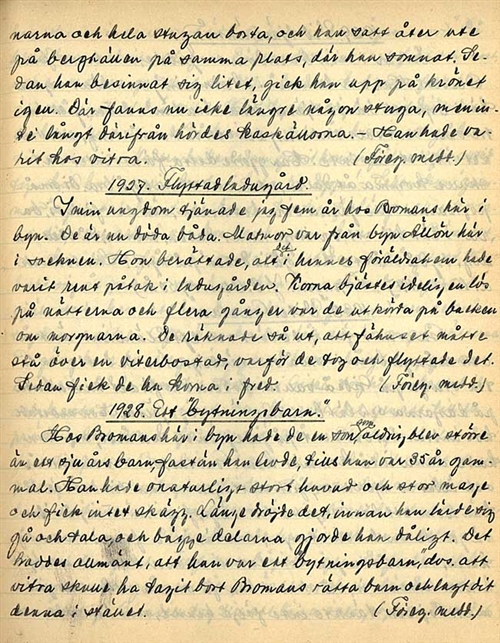 narna och hela stugan borta, och han satt åter ute
på berghällen på samma plats, där han somnat. Se-
dan han besinnat sig litet, gick han upp på krönet
igen. Där fanns nu icke längre någon stuga, men in-
te långt därifrån hördes kaskällorna. – Han hade va-
rit hos vitra. (Föreg. medd.)
1927. Flyttad ladugård.
I min ungdom tjänade jag fem år hos Bromans här i
byn. De är nu döda båda. Matmor var från byn Ällön här
i socknen. Hon berättade, att det i hennes föräldrahem hade
varit rent påtak i ladugården. Korna bjästes idelig en lös
på nätterna och flera gånger var de utkörda på backen
om morgnarna. De räknade så ut, att fähuset måtte
stå över en viterbostad, varför de tog och flyttade det.
Sedan fick de ha korna i fred. (Föreg. medd.)
1928. Ett "bytningsbarn."
Hos Bromans här i byn hade de en son, som aldrig blev större
än ett sju års barn, fastän han levde, tills han var 35 år gam-
mal. Han hade onaturligt stort huvud och stor mage
och fick intet skägg. Länge dröjde det, innan han lärde sig
gå och tala, och bägge delarna gjorde han dåligt. Det
troddes allmänt, att han var ett "bytningsbarn", dvs. att
vitra skulle ha tagit bort Bromans rätta barn och lagt dit
denna i stället. (Föreg. medd.)